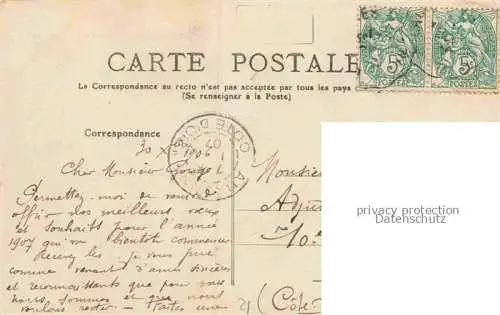 CARTE POSTALE
5c 5c
POSTES
La Correspondance au recto n'est pas acceptée par tous les pays
(Se renseigner à la Poste)
Correspondance
CÔTE D'OR
07
30 X 1906
Cher Monsieur
Monsieur
Permettez-moi de vous
offrir nos meilleurs vœux
et souhaits pour l'année
1907 qui va bientôt commencer
Recevez les je vous prie
comme venant d'amis sincères
et reconnaissants que pour vous
nous sommes et que nous
voulons rester - Faites une
privacy protection
Datenschutz
(Côte